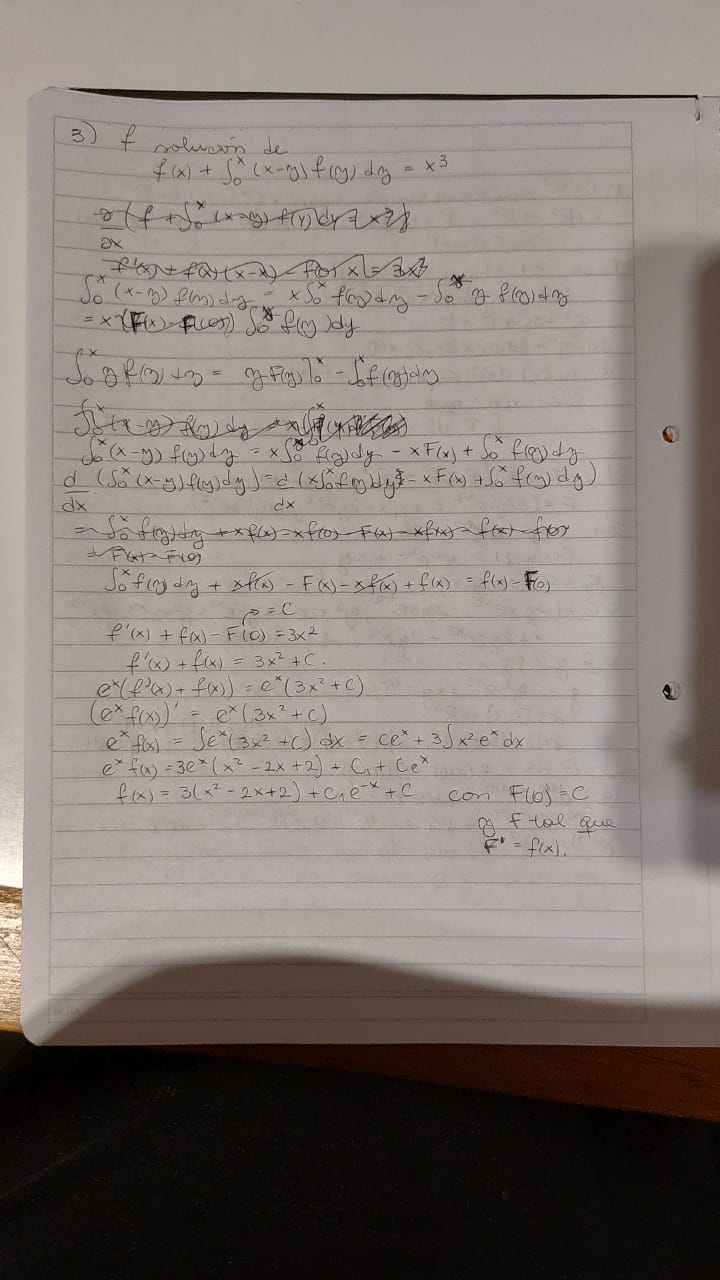 3) f solución de
f(x) + ∫₀ˣ (x-y) f(y) dy = x³
∂/∂x (f + ∫₀ˣ (x-y) f(y) dy = x³)
f'(x) + f(x)(x-x) - f(0) x = 3x²
∫₀ˣ (x-y) f(y) dy = x ∫₀ˣ f(y) dy - ∫₀ˣ y f(y) dy
= x ∫₀ˣ f(y) dy
∫₀ˣ y f(y) dy = y F(y) ]₀ˣ - ∫₀ˣ f(y) dy
∫₀ˣ (x-y) f(y) dy = x
∫₀ˣ (x-y) f(y) dy = x ∫₀ˣ f(y) dy - x F(x) + ∫₀ˣ f(y) dy
d/dx (∫₀ˣ (x-y) f(y) dy) = d/dx (x ∫₀ˣ f(y) dy - x F(x) + ∫₀ˣ f(y) dy)
= ∫₀ˣ f(y) dy + x f(x) - x f(0) - F(x) - x f(x) - f(x) - f(0)
= F(x) - F(0)
∫₀ˣ f(y) dy + x f(x) - F(x) - x f(x) + f(x) = f(x) - F(0)
= C
f'(x) + f(x) - F(0) = 3x²
f'(x) + f(x) = 3x² + C.
eˣ(f'(x) + f(x)) = eˣ(3x² + C)
(eˣ f(x))' = eˣ(3x² + C)
eˣ f(x) = ∫eˣ(3x² + C) dx = ceˣ + 3∫x²eˣ dx
eˣ f(x) = 3eˣ(x² - 2x + 2) + C₁ + Ceˣ
f(x) = 3(x² - 2x + 2) + C₁e⁻ˣ + C con F(0) = C
y F tal que
F' = f(x).